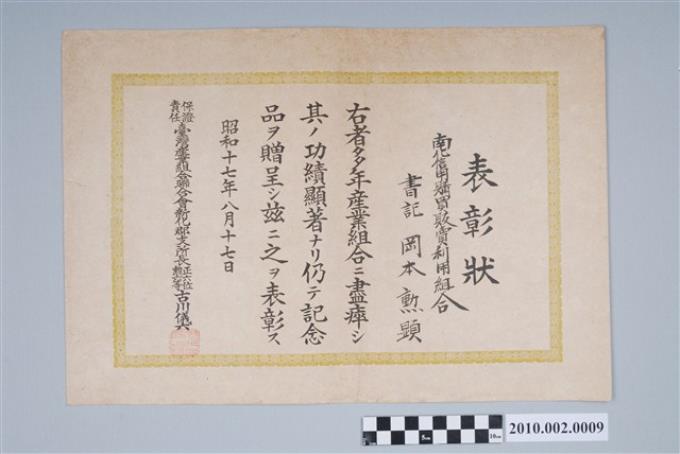 表彰狀
南化信用購買販賣利用組合
書記 岡本勲顕
右者多年産業組合ニ盡瘁シ
其ノ功績顯著ナリ仍テ記念
品ヲ贈呈シ茲ニ之ヲ表彰ス
昭和十七年八月十七日
保證責任臺灣産業組合聯合會新化郡支所長正六位勲六等古川儀六
5cm 10cm
2010.002.0009